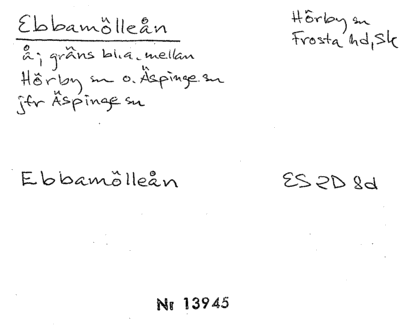 Ebbamölleån
Hörby sn
Frosta hd, Sk
å; gräns bl.a. mellan
Hörby sn o. Äspinge sn
jfr Äspinge sn
Ebbamölleån
ES 2D 8d
Nr 13945